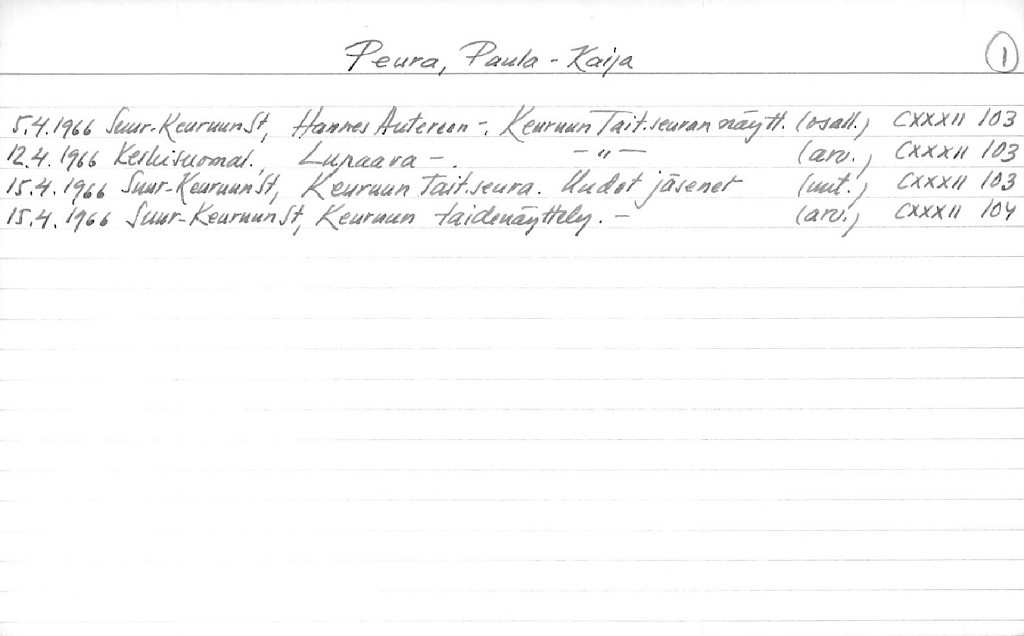 Peura, Paula-Kaija 1
5.4.1966 Suur-KeuruunSt, Hannes Autereen -. Keuruun Tait.seuran näytt. (osall.) CXXXII 103
12.4.1966 Keskisuomal., Lupaava -. -"- (arv.) CXXXII 103
15.4.1966 Suur-KeuruunSt, Keuruun Tait.seura. Uudet jäsenet (uut.) CXXXII 103
15.4.1966 Suur-KeuruunSt, Keuruun taidenäyttely. - (arv.) CXXXII 104